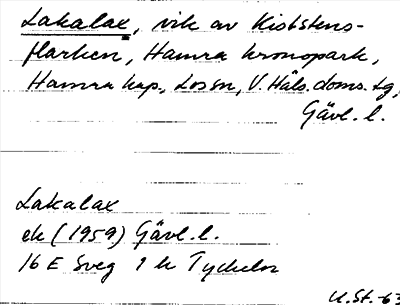 Lakalax, vik av Kiststens-
flarken, Hamra kronopark,
Hamra kap., Los sn, V. Häls. doms. tg,
Gävl. l.
Lakalax
ek (1959) Gävl. l.
16 E Sveg 1 h Tyckeln
U.St.-63